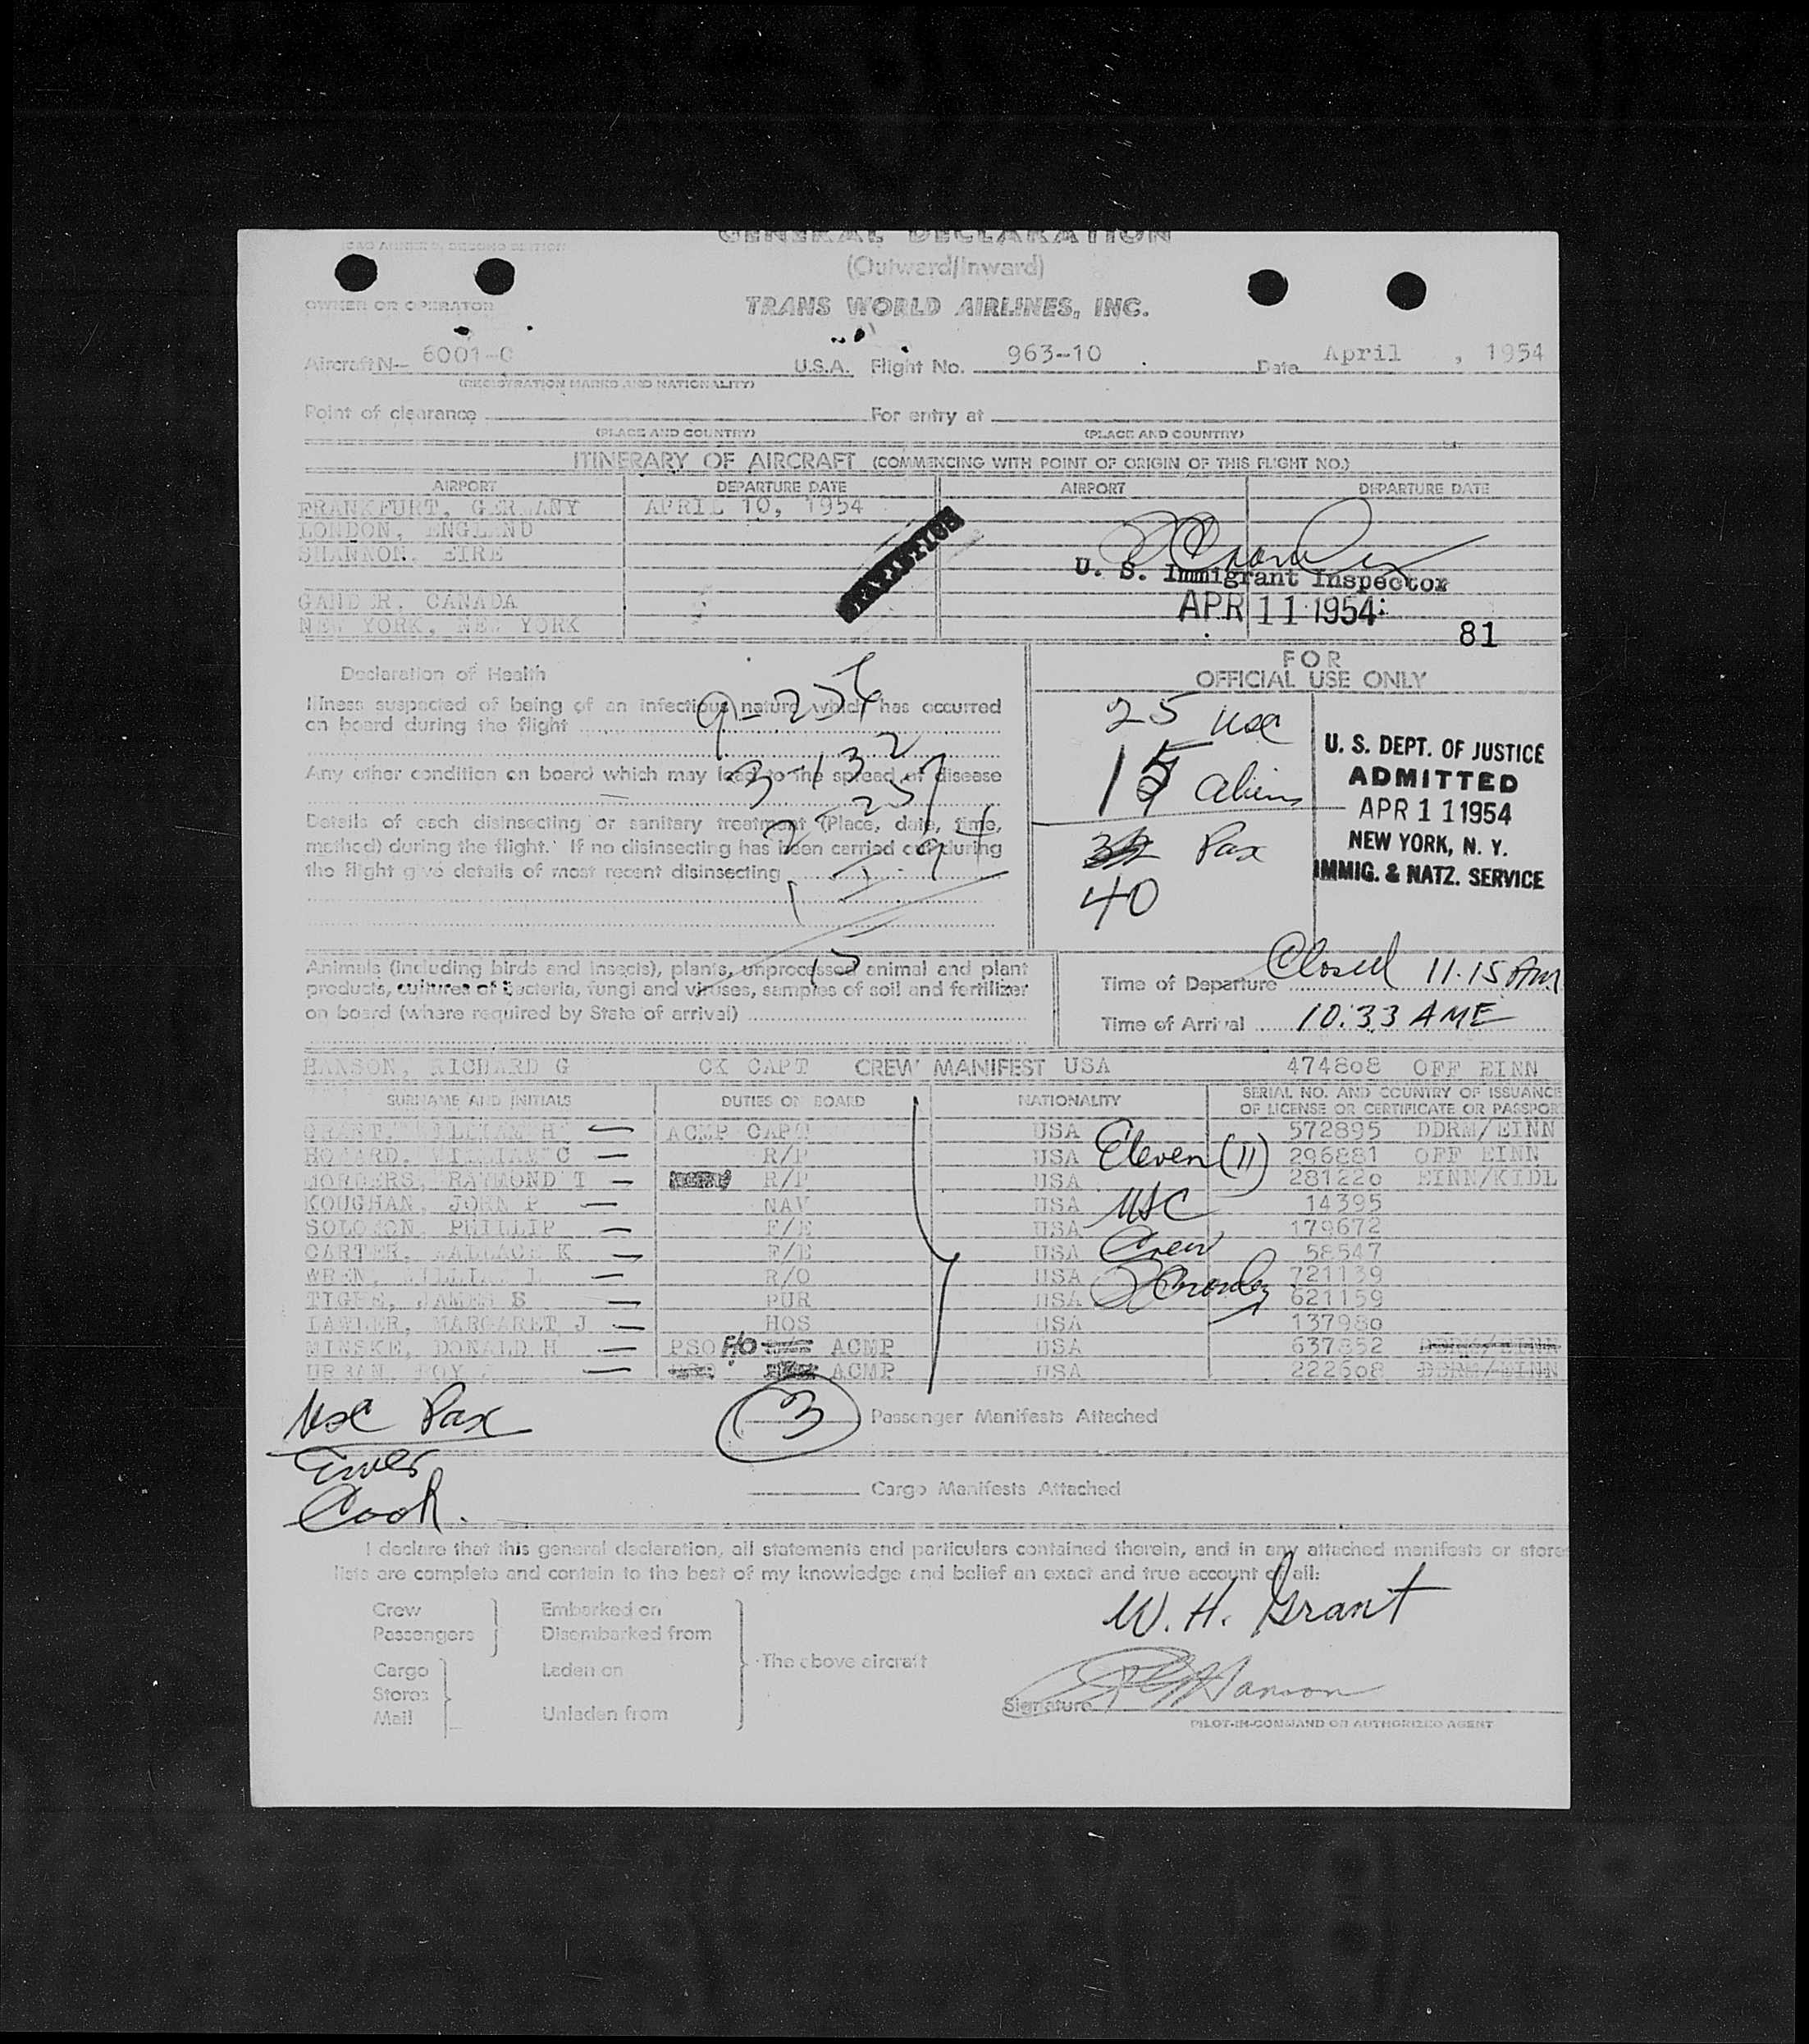 GENERAL DECLARATION
(Outward/Inward)
OWNER OR OPERATOR TRANS WORLD AIRLINES, INC.
Aircraft N- 6001-C U.S.A. Flight No. 963-10 Date April , 1954
(REGISTRATION MARKS AND NATIONALITY)
Point of clearance For entry at
(PLACE AND COUNTRY) (PLACE AND COUNTRY)
ITINERARY OF AIRCRAFT (COMMENCING WITH POINT OF ORIGIN OF THIS FLIGHT NO.)
AIRPORT DEPARTURE DATE AIRPORT DEPARTURE DATE
FRANKFURT, GERMANY APRIL 10, 1954
LONDON, ENGLAND
SHANNON, EIRE
U. S. Immigrant Inspector
GANDER, CANADA
APR 11 1954
NEW YORK, NEW YORK
81
STATISTICS
Declaration of Health
Illness suspected of being of an infectious nature which has occurred
on board during the flight
Any other condition on board which may lead to the spread of disease
Details of each disinsecting or sanitary treatment (Place, date, time,
method) during the flight. If no disinsecting has been carried out during
the flight give details of most recent disinsecting
FOR
OFFICIAL USE ONLY
25 usc
15 aliens
Pax
40
U. S. DEPT. OF JUSTICE
ADMITTED
APR 11 1954
NEW YORK, N. Y.
IMMIG. & NATZ. SERVICE
Animals (including birds and insects), plants, unprocessed animal and plant
products, cultures of bacteria, fungi and viruses, samples of soil and fertilizer
on board (where required by State of arrival)
Time of Departure Closed 11.15 AM
Time of Arrival 10:33 AME
HANSON, RICHARD G CK CAPT CREW MANIFEST USA 474808 OFF EINN
SURNAME AND INITIALS DUTIES ON BOARD NATIONALITY SERIAL NO. AND COUNTRY OF ISSUANCE
OF LICENSE OR CERTIFICATE OR PASSPORT
GRANT, WILLIAM H ACMP CAPT USA 572895 DDRM/EINN
HOWARD, WILLIAM C R/P USA 296881 OFF EINN
RAYMOND T R/P USA 281220 EINN/KIDL
KOUGHAN, JOHN P NAV USA 14395
SOLOMON PHILLIP F/E USA 179672
CARTER, WALLACE K F/E USA 58547
WREN, WILLIAM L R/O USA 721139
TIGHE, JAMES E PUR USA 621159
LAWLER, MARGARET J HOS USA 137980
MINSKE, DONALD H PSO F/O ACMP USA 637852 DDRM/EINN
URBAN, ROY ACMP USA 222608 DDRM/EINN
Eleven (11)
USC
Crew
Usc Pax
Cook.
3 Passenger Manifests Attached
Cargo Manifests Attached
I declare that this general declaration, all statements and particulars contained therein, and in any attached manifests or stores
lists are complete and contain to the best of my knowledge and belief an exact and true account of all:
Crew
Passengers
Embarked on
Disembarked from
Cargo
Stores
Mail
Laden on
Unladen from
The above aircraft
W. H. Grant
Signature R G Hanson
PILOT-IN-COMMAND OR AUTHORIZED AGENT